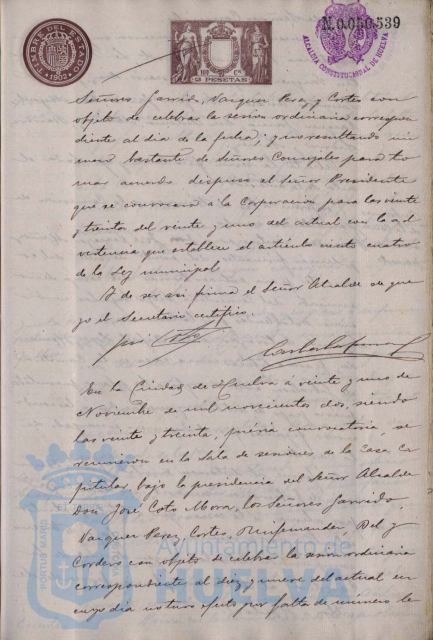 TIMBRE DEL ESTADO
1902
2 PESETAS
N.0.050.539
ALCALDIA CONSTITUCIONAL DE HUELVA
Señores Garrido, Vazquez Perez, y Cortes con
objeto de celebrar la sesion ordinaria correspon
diente al dia de la fecha, y no resultando nú
mero bastante de Señores Concejales para to
mar acuerdo dispuso el Señor Presidente
que se convocara á la Corporacion para las veinte
y treinta del veinte y uno del actual con la ad
vertencia que establece el artículo ciento cuatro
de la Ley municipal
Y de ser asi firma el Señor Alcalde de que
yo el Secretario certifico.
En la Ciudad de Huelva á veinte y uno de
Noviembre de mil novecientos dos, siendo
las veinte y treinta, prévia convocatoria, se
reunieron en la Sala de sesiones de la Casa Ca
pitular, bajo la presidencia del Señor Alcalde
Don José Coto Mora, los Señores Garrido,
Vazquez Perez, Cortes, Hernandez Del y
Cordero con objeto de celebrar la sesion ordinaria
correspondiente al diez y nueve del actual en
cuyo dia no tuvo efecto por falta de número le
Ayuntamiento de
HUELVA
PORTUS MARIS